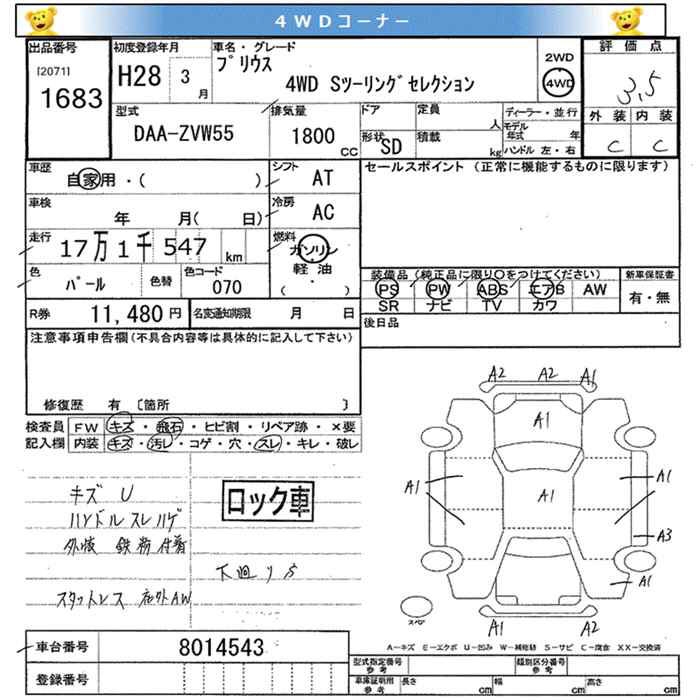 4WDコーナー
出品番号
[2071]
1683
初度登録年月
H28 3 月
車名・グレード
プリウス
4WD Sツーリングセレクション
2WD
4WD
評価点
3,5
外装 内装
C C
型式
DAA-ZVW55
排気量
1800 CC
ドア 定員 人
形状 SD 積載 kg
ディーラー・並行
モデル年式 年
ハンドル 左・右
車歴
自家用・( )
シフト AT
車検
年 月( 日)
冷房 AC
走行
17万1千547 km
燃料
ガソリン
軽油
( ・ )
色
パール
色替
色コード
070
R券 11,480 円
名変通知期限 月 日
セールスポイント (正常に機能するものに限ります)
装備品 (純正品に限り○をつけてください)
PS PW ABS エアB AW
SR ナビ TV カワ
新車保証書
有・無
後日品
注意事項申告欄(不具合内容等は具体的に記入して下さい)
修復歴 有 〔箇所 〕
検査員記入欄
FW キズ・飛石・ヒビ割・リペア跡・×要
内装 キズ・汚レ・コゲ・穴・スレ・キレ・破レ
キズ U
ハンドルスレハゲ
外板 鉄粉付着
スタットレス 社外AW
ロック車
下廻りS
A2 A2 A1
A1
A1 A1 A1
A3
A1
A1 A2
スペア
A-キズ E-エクボ U-凹み W-補修跡 S-サビ C-腐食 XX-交換済
車台番号 8014543
登録番号
型式指定番号 参考
類別区分番号 参考
車庫証明用 参考
長さ cm 幅 cm 高さ cm